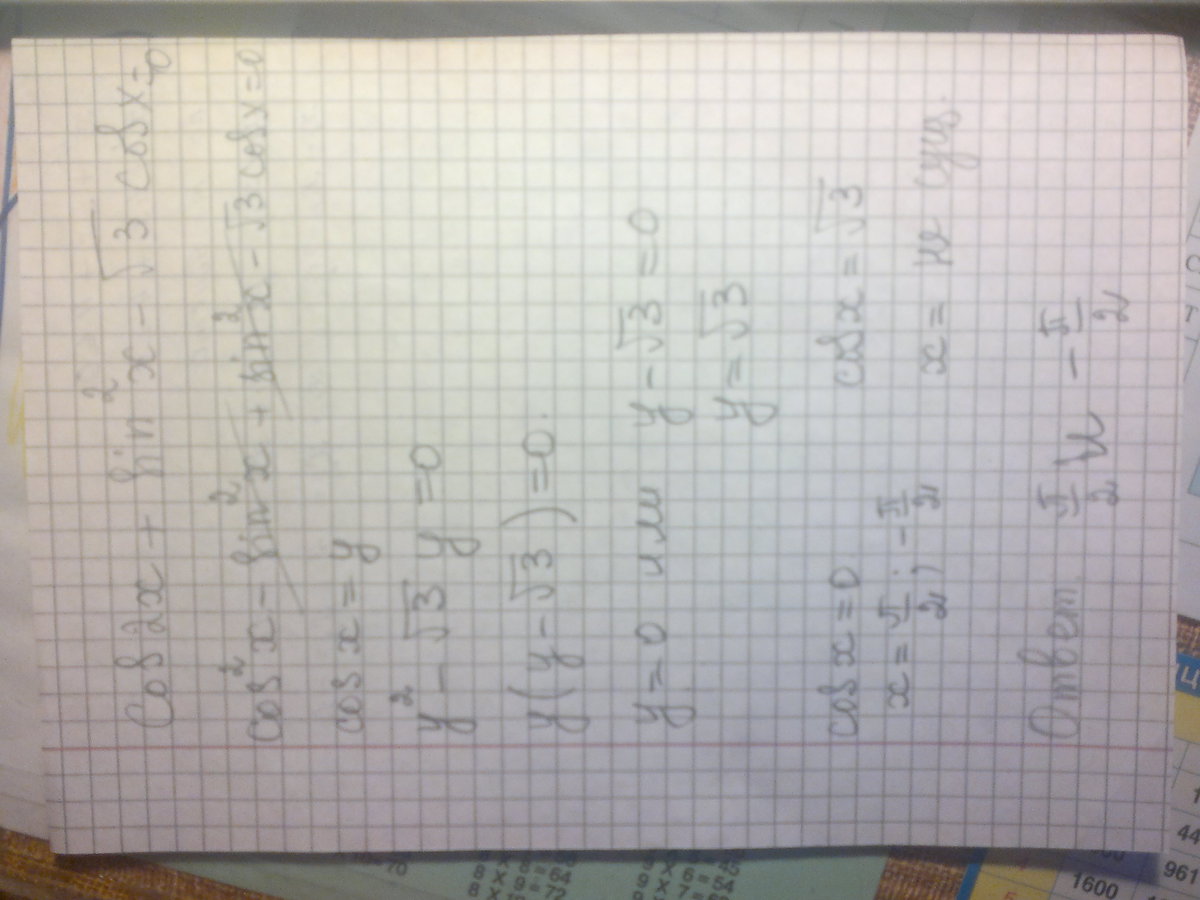 cos 2x + sin² x - √3 cos x = 0
cos² x - sin² x + sin² x - √3 cos x = 0
cos x = y
y² - √3 y = 0
y(y - √3) = 0.
y = 0 или y - √3 = 0
y = √3
cos x = 0 cos x = √3
x = π/2; -π/2 x = не сущ.
Ответ. π/2 и -π/2
1600
961
44